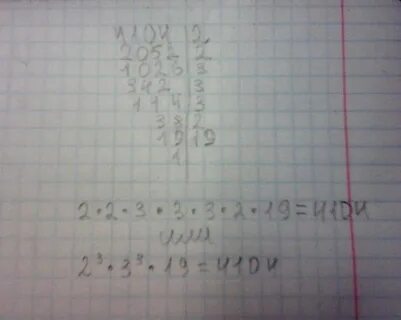 4104 | 2
2052 | 2
1026 | 3
342 | 3
114 | 3
38 | 2
19 | 19
1 |
2·2·3·3·3·2·19=4104
или
2³·3³·19=4104